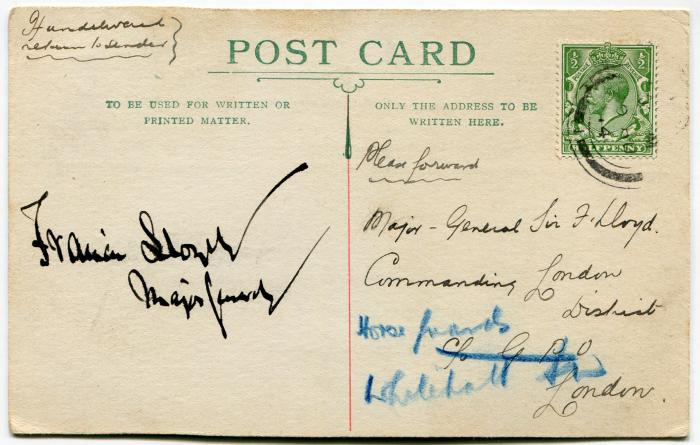 If undelivered
return to sender
POST CARD
TO BE USED FOR WRITTEN OR
PRINTED MATTER.
ONLY THE ADDRESS TO BE
WRITTEN HERE.
½ ½
HALFPENNY
Please forward
Major-General Sir F. Lloyd.
Commanding London
District
Horse Guards
C/o G P O
Whitehall SW
London.
Francis Lloyd
Major General